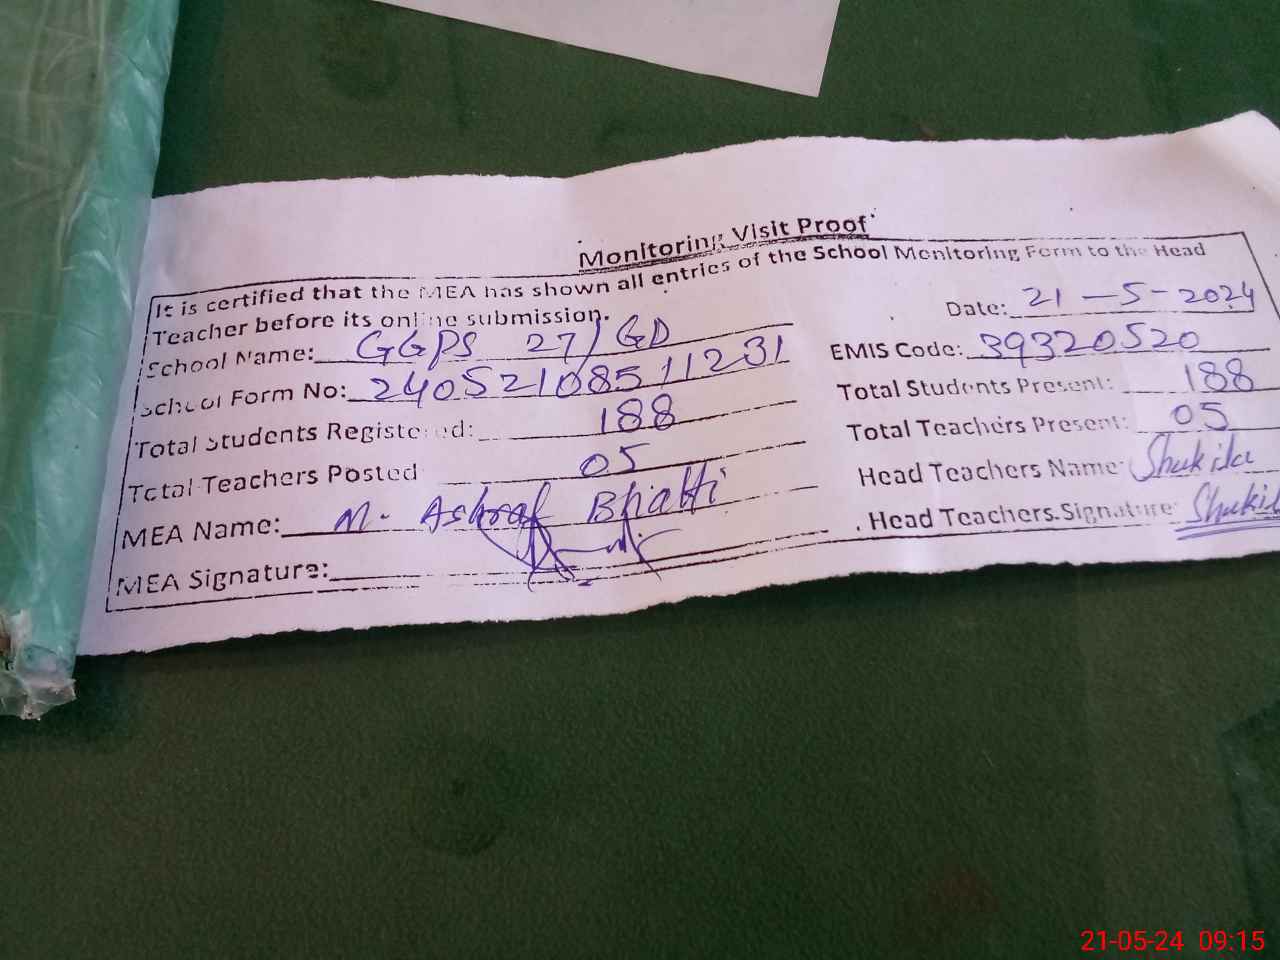 Monitoring Visit Proof
It is certified that the MEA has shown all entries of the School Monitoring Form to the Head
Teacher before its online submission.
Date: 21-5-2024
School Name: GGPS 27/GD
EMIS Code: 39320520
School Form No: 24052108511231
Total Students Present: 188
Total Students Registered: 188
Total Teachers Present: 05
Total Teachers Posted 05
Head Teachers Name: Shukila
MEA Name: M. Ashraf Bhatti
Head Teachers Signature: Shukil
MEA Signature:
21-05-24 09:15